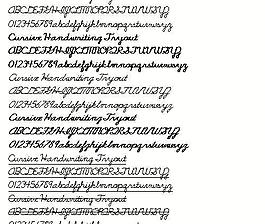 ABCDEFGHIJKLMNOPQRSTUVWXYZ
0123456789abcdefghijklmnopqrstuvwxyz
Cursive Handwriting Tryout
ABCDEFGHIJKLMNOPQRSTUVWXYZ
0123456789abcdefghijklmnopqrstuvwxyz
Cursive Handwriting Tryout
ABCDEFGHIJKLMNOPQRSTUVWXYZ
0123456789abcdefghijklmnopqrstuvwxyz
Cursive Handwriting Tryout
ABCDEFGHIJKLMNOPQRSTUVWXYZ
0123456789abcdefghijklmnopqrstuvwxyz
Cursive Handwriting Tryout
ABCDEFGHIJKLMNOPQRSTUVWXYZ
0123456789abcdefghijklmnopqrstuvwxyz
Cursive Handwriting Tryout
ABCDEFGHIJKLMNOPQRSTUVWXYZ